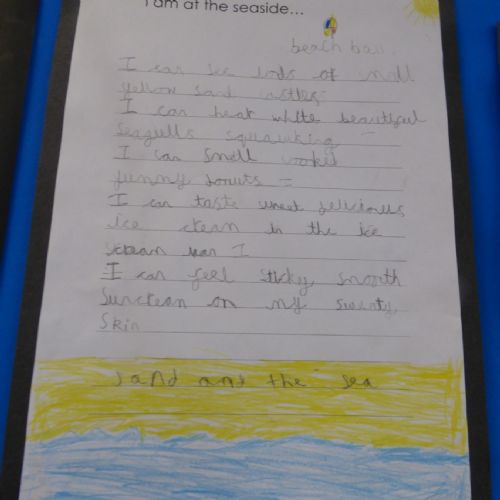 I am at the seaside...
beach ball
I can see lods of small
yellow sand castles
I can hear white beautiful
seagulls squawking
I can smell cooked
funny donuts
I can taste sweet delicious
ice cream in the ice
cream van I
I can feel sticky smooth
suncream on my sweaty
skin
sand and the sea